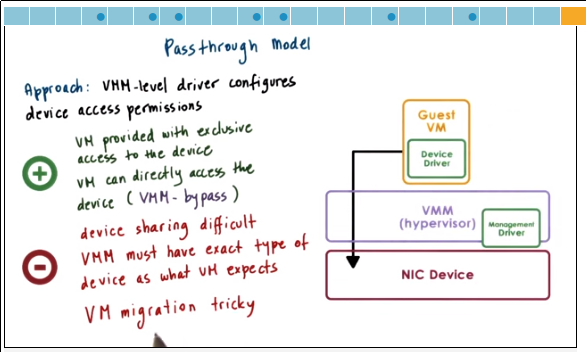 Passthrough Model
Approach: VMM-level driver configures
device access permissions
VM provided with exclusive
access to the device
VM can directly access the
device (VMM-bypass)
device sharing difficult
VMM must have exact type of
device as what VM expects
VM migration tricky
Guest
VM
Device
Driver
VMM
(hypervisor)
Management
Driver
NIC Device